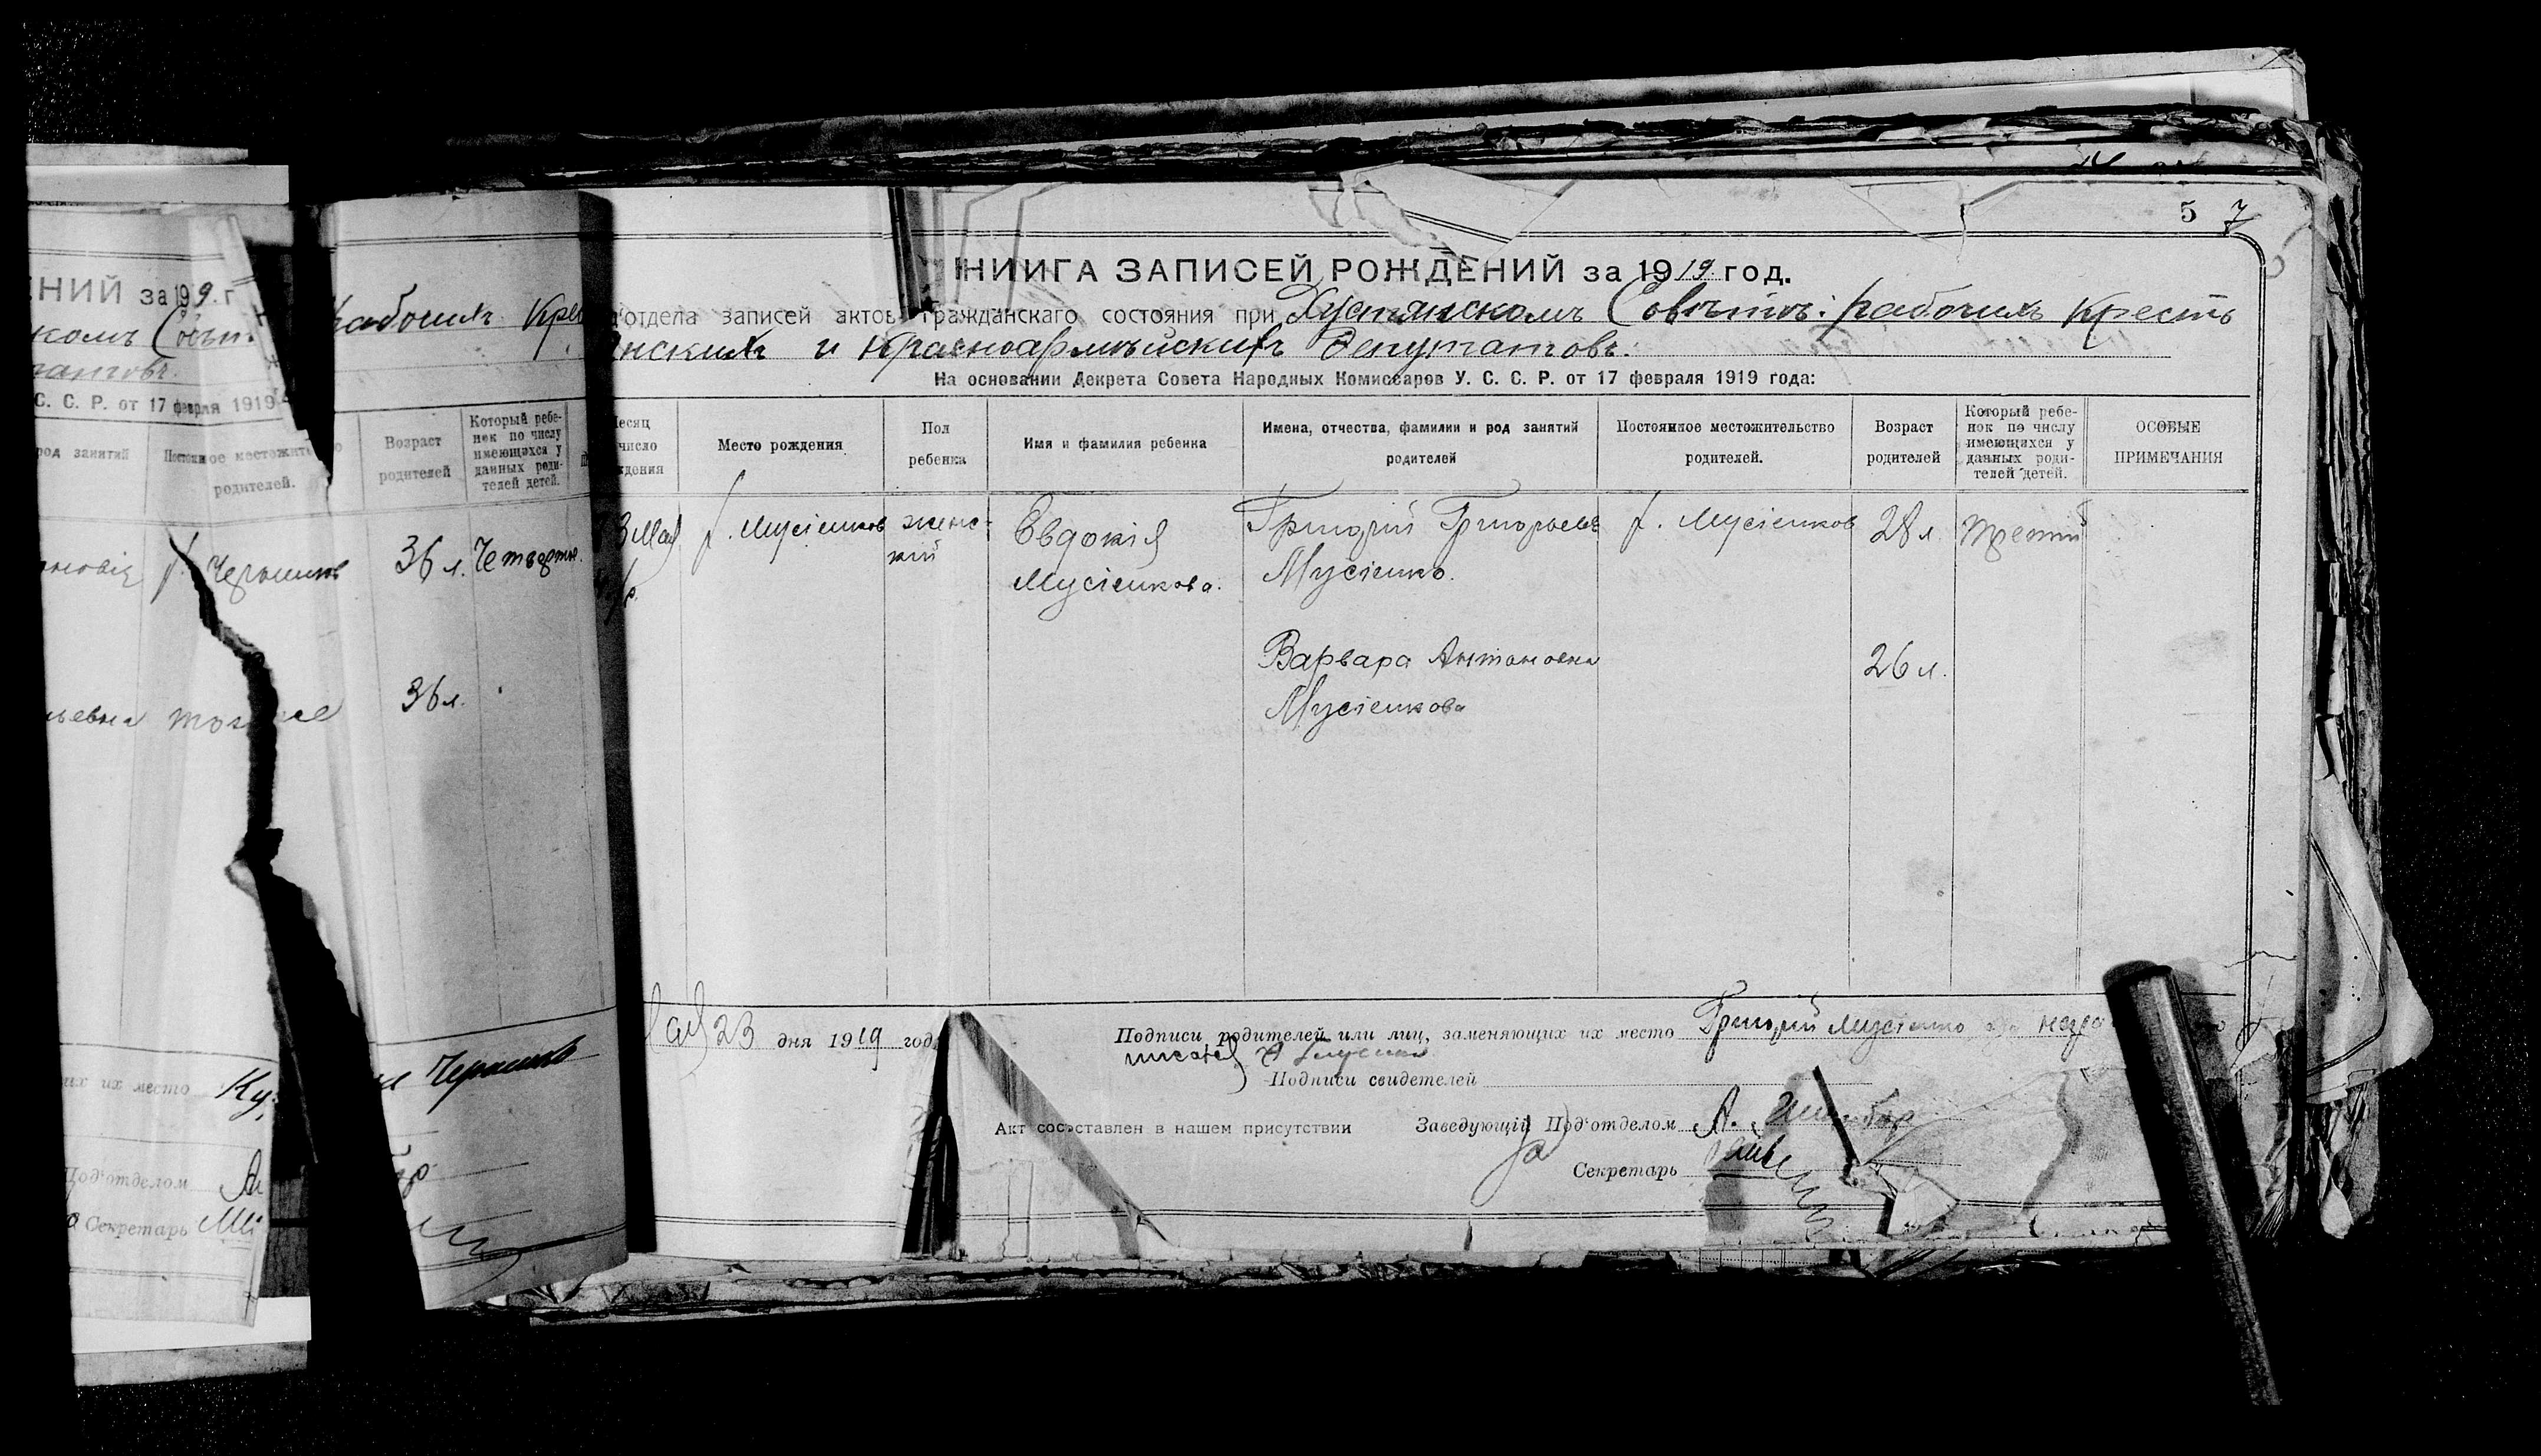 5 7
НИИГА ЗАПИСЕЙ РОЖДЕНИЙ за 1919 год.
отдела записей актов гражданскаго состояния при Хустянскомъ Совѣтѣ: рабочихъ Кресть
нскихъ и красноармѣйскихъ депутатовъ.
На основании Декрета Совета Народных Комиссаров У. С. С. Р. от 17 февраля 1919 года:
есяц число ждения
Место рождения
Пол ребенка
Имя и фамилия ребенка
Имена, отчества, фамилии и род занятий родителей
Постоянное местожительство родителей.
Возраст родителей
Который ребе-
нок по числу
имеющихся у
данных роди-
телей детей.
ОСОБЫЕ ПРИМЕЧАНИЯ
3 Мая х. Мусіенков женс- Евдокія Григорій Григорьевъ х. Мусіенков 28 л. третій
кій Мусіенкова. Мусіенко.
Варвара Антоновна 26 л.
Мусіенкова
ая 23 дня 1919 год
Подписи родителей или лиц, заменяющих их место Григорій Мусіенко
Подписи свидетелей
Акт сос ставлен в нашем присутствии
Заведующій Под'отделом А.
Секретарь
НИЙ за 19 9. г
комъ Совѣт. рабочихъ Кре
татовъ.
С. С. Р. от 17 февраля 1919
род занятий
Постоянное местожительство родителей.
Возраст родителей
Который ребе-
нок по числу
имеющихся у
данных роди-
телей детей.
х. 36 л. Четверты
ьевна 36 л.
их их место
Под'отделом
Секретарь